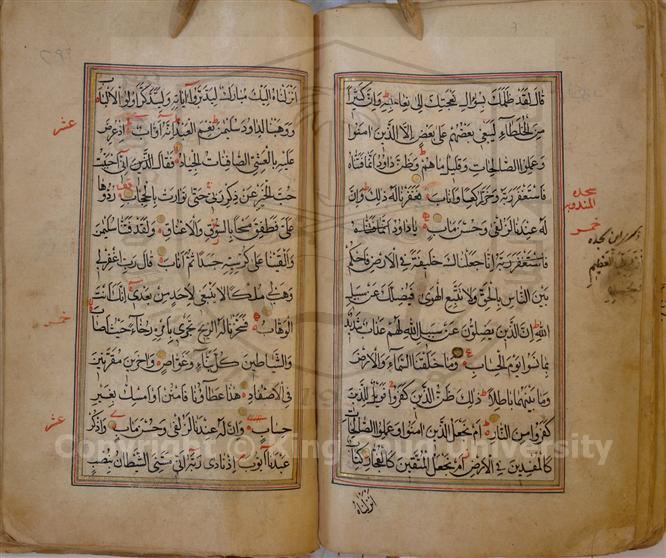 قال لقد ظلمك بسؤال نعجتك إلى نعاجه وإن كثيرا
من الخلطاء ليبغي بعضهم على بعض إلا الذين امنوا
وعملوا الصالحات وقليل ما هم وظن داود انما فتناه
فاستغفر ربه وخر راكعا واناب فغفرنا له ذلك وإن
له عندنا لزلفى وحسن مآب ياداود انما فتناه
فاستغفر ربه إنا جعلناك خليفة في الأرض فاحكم
بين الناس بالحق ولا تتبع الهوى فيضلك عن سبيل
الله إن الذين يضلون عن سبيل الله لهم عذاب شديد
بما نسوا يوم الحساب وما خلقنا السماء والأرض
وما بينهما باطلا ذلك ظن الذين كفروا فويل للذين
كفروا من النار أم نجعل الذين امنوا وعملوا الصالحات
كالمفسدين في الأرض أم نجعل المتقين كالفجار كتاب
انزلناه
سجده
خمس
انزلناه إليك مبارك ليدبروا آياته وليتذكر أولي الألباب
ووهبنا لداود سليمن نعم العبد إنه أواب إذ عرض
عليه بالعشي الصافنات الجياد فقال إني أحببت
حب الخير عن ذكر ربي حتى توارت بالحجاب ردوها
علي فطفق مسحا بالسوق والأعناق ولقد فتنا سليمن
وألقينا على كرسيه جسدا ثم أناب قال رب اغفر لي
وهب لي ملكا لا ينبغي لأحد من بعدي إنك أنت
الوهاب فسخرنا له الريح تجري بأمره رخاء حيث أصاب
والشياطين كل بناء وغواص واخرين مقرنين
في الأصفاد هذا عطاؤنا فامنن أو امسك بغير
حساب وإن له عندنا لزلفى وحسن مآب واذكر
عبدنا أيوب إذ نادى ربه أني مسني الشيطان بنصب
عشر
خمس
عشر
Copyright © King Saud University